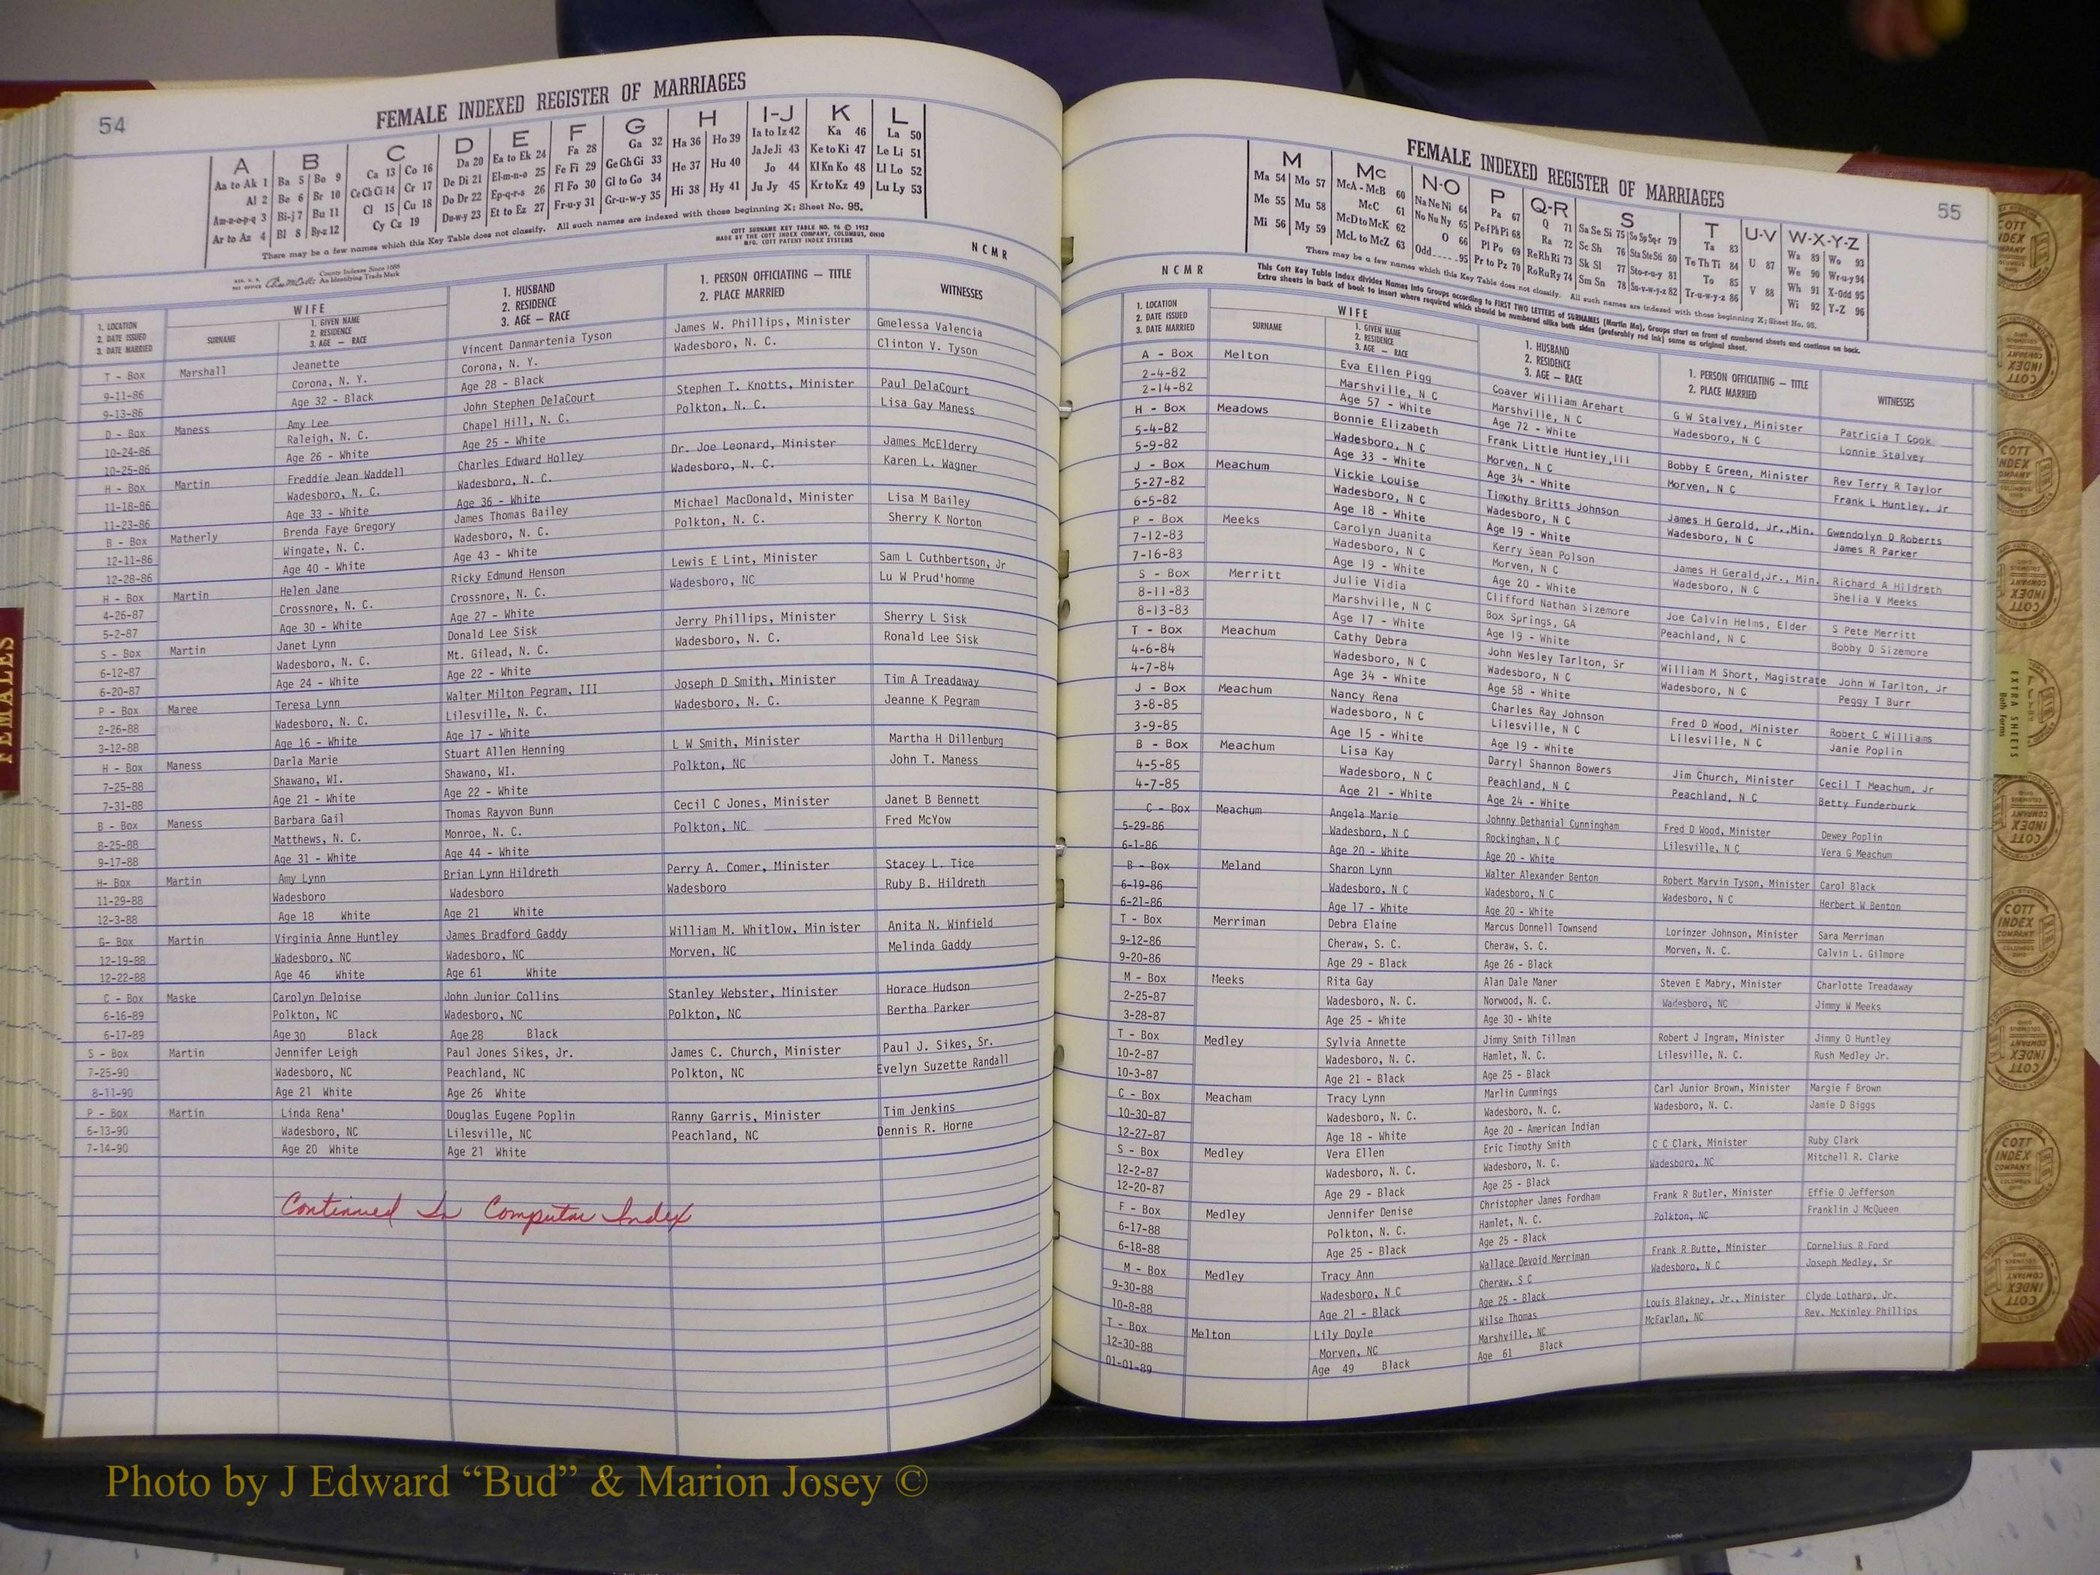 54
FEMALE INDEXED REGISTER OF MARRIAGES
A B C D E F G H I-J K L
Aa to Ak 1 Ba 5 Bo 9 Ca 13 Co 16 Da 20 Ea to Ek 24 Fa 28 Ga 32 Ha 36 Ho 39 Ia to Iz 42 Ka 46 La 50
Al 2 Be 6 Br 10 Ce Ch Ci 14 Cr 17 De Di 21 El-m-n-o 25 Fe Fi 29 Ge Gh Gi 33 He 37 Hu 40 Ja Je Ji 43 Ke to Ki 47 Le Li 51
Am-n-o-p-q 3 Bi-j 7 Bu 11 Cl 15 Cu 18 Do Dr 22 Ep-q-r-s 26 Fl Fo 30 Gl to Go 34 Hi 38 Hy 41 Jo 44 Kl Kn Ko 48 Ll Lo 52
Ar to Az 4 Bl 8 By-z 12 Cy Cz 19 Du-w-y 23 Et to Ez 27 Fr-u-y 31 Gr-u-w-y 35 Ju Jy 45 Kr to Kz 49 Lu Ly 53
There may be a few names which this Key Table does not classify. All such names are indexed with those beginning X; Sheet No. 95.
COTT SURNAME KEY TABLE NO. 96 © 1952
MADE BY THE COTT INDEX COMPANY, COLUMBUS, OHIO
MFG. COTT PATENT INDEX SYSTEMS
NCMR
County Indexes Since 1888
An Identifying Trade Mark
1. LOCATION
2. DATE ISSUED
3. DATE MARRIED
WIFE
SURNAME
1. GIVEN NAME
2. RESIDENCE
3. AGE — RACE
1. HUSBAND
2. RESIDENCE
3. AGE — RACE
1. PERSON OFFICIATING — TITLE
2. PLACE MARRIED
WITNESSES
T - Box Marshall Jeanette Vincent Danmartenia Tyson James W. Phillips, Minister Gmelessa Valencia
9-11-86 Corona, N. Y. Corona, N. Y. Wadesboro, N. C. Clinton V. Tyson
9-13-86 Age 32 - Black Age 28 - Black
D - Box Maness Amy Lee John Stephen DelaCourt Stephen T. Knotts, Minister Paul DelaCourt
10-24-86 Raleigh, N. C. Chapel Hill, N. C. Polkton, N. C. Lisa Gay Maness
10-25-86 Age 26 - White Age 25 - White
H - Box Martin Freddie Jean Waddell Charles Edward Holley Dr. Joe Leonard, Minister James McElderry
11-18-86 Wadesboro, N. C. Wadesboro, N. C. Wadesboro, N. C. Karen L. Wagner
11-23-86 Age 33 - White Age 36 - White
B - Box Matherly Brenda Faye Gregory James Thomas Bailey Michael MacDonald, Minister Lisa M Bailey
12-11-86 Wingate, N. C. Wadesboro, N. C. Polkton, N. C. Sherry K Norton
12-28-86 Age 40 - White Age 43 - White
H - Box Martin Helen Jane Ricky Edmund Henson Lewis E Lint, Minister Sam L Cuthbertson, Jr
4-26-87 Crossnore, N. C. Crossnore, N. C. Wadesboro, NC Lu W Prud'homme
5-2-87 Age 30 - White Age 27 - White
S - Box Martin Janet Lynn Donald Lee Sisk Jerry Phillips, Minister Sherry L Sisk
6-12-87 Wadesboro, N. C. Mt. Gilead, N. C. Wadesboro, N. C. Ronald Lee Sisk
6-20-87 Age 24 - White Age 22 - White
P - Box Maree Teresa Lynn Walter Milton Pegram, III Joseph D Smith, Minister Tim A Treadaway
2-26-88 Wadesboro, N. C. Lilesville, N. C. Wadesboro, N. C. Jeanne K Pegram
3-12-88 Age 16 - White Age 17 - White
H - Box Maness Darla Marie Stuart Allen Henning L W Smith, Minister Martha H Dillenburg
7-25-88 Shawano, WI. Shawano, WI. Polkton, NC John T. Maness
7-31-88 Age 21 - White Age 22 - White
B - Box Maness Barbara Gail Thomas Rayvon Bunn Cecil C Jones, Minister Janet B Bennett
8-25-88 Matthews, N. C. Monroe, N. C. Polkton, NC Fred McYow
9-17-88 Age 31 - White Age 44 - White
H- Box Martin Amy Lynn Brian Lynn Hildreth Perry A. Comer, Minister Stacey L. Tice
11-29-88 Wadesboro Wadesboro Wadesboro Ruby B. Hildreth
12-3-88 Age 18 White Age 21 White
G- Box Martin Virginia Anne Huntley James Bradford Gaddy William M. Whitlow, Minister Anita N. Winfield
12-19-88 Wadesboro, NC Wadesboro, NC Morven, NC Melinda Gaddy
12-22-88 Age 46 White Age 61 White
C - Box Maske Carolyn Deloise John Junior Collins Stanley Webster, Minister Horace Hudson
6-16-89 Polkton, NC Wadesboro, NC Polkton, NC Bertha Parker
6-17-89 Age 30 Black Age 28 Black
S - Box Martin Jennifer Leigh Paul Jones Sikes, Jr. James C. Church, Minister Paul J. Sikes, Sr.
7-25-90 Wadesboro, NC Peachland, NC Polkton, NC Evelyn Suzette Randall
8-11-90 Age 21 White Age 26 White
P - Box Martin Linda Rena' Douglas Eugene Poplin Ranny Garris, Minister Tim Jenkins
6-13-90 Wadesboro, NC Lilesville, NC Peachland, NC Dennis R. Horne
7-14-90 Age 20 White Age 21 White
Continued In Computer Index
FEMALES
55
FEMALE INDEXED REGISTER OF MARRIAGES
M Mc N-O P Q-R S T U-V W-X-Y-Z
Ma 54 Mo 57 McA - McB 60 Na Ne Ni 64 Pa 67 Q 71 Sa Se Si 75 So Sp Sq-r 79 Ta 83 U 87 Wa 89 Wo 93
Me 55 Mu 58 McC 61 No Nu Ny 65 Pe-f Ph Pi 68 Ra 72 Sc Sh 76 Sta Ste Sti 80 Te Th Ti 84 V 88 We 90 Wr-u-y 94
Mi 56 My 59 McD to McK 62 O 66 Pl Po 69 Re Rh Ri 73 Sk Sl 77 Sto-r-u-y 81 To 85 Wh 91 X-Odd 95
McL to McZ 63 Odd.....95 Pr to Pz 70 Ro Ru Ry 74 Sm Sn 78 Su-v-w-y-z 82 Tr-u-w-y-z 86 Wi 92 Y-Z 96
There may be a few names which this Key Table does not classify. All such names are indexed with those beginning X; Sheet No. 95.
NCMR
This Cott Key Table Index divides Names into Groups according to FIRST TWO LETTERS of SURNAMES (Martin Ma), Groups start on front of numbered sheets and continue on back.
Extra sheets in back of book to insert where required which should be numbered alike both sides (preferably red ink) same as original sheet.
1. LOCATION
2. DATE ISSUED
3. DATE MARRIED
WIFE
SURNAME
1. GIVEN NAME
2. RESIDENCE
3. AGE — RACE
1. HUSBAND
2. RESIDENCE
3. AGE — RACE
1. PERSON OFFICIATING — TITLE
2. PLACE MARRIED
WITNESSES
A - Box Melton Eva Ellen Pigg Coaver William Arehart G W Stalvey, Minister Patricia T Cook
2-4-82 Marshville, N C Marshville, N C Wadesboro, N C Lonnie Stalvey
2-14-82 Age 57 - White Age 72 - White
H - Box Meadows Bonnie Elizabeth Frank Little Huntley,III Bobby E Green, Minister Rev Terry R Taylor
5-4-82 Wadesboro, N C Morven, N C Morven, N C Frank L Huntley, Jr
5-9-82 Age 33 - White Age 34 - White
J - Box Meachum Vickie Louise Timothy Britts Johnson James H Gerold, Jr.,Min. Gwendolyn D Roberts
5-27-82 Wadesboro, N C Wadesboro, N C Wadesboro, N C James R Parker
6-5-82 Age 18 - White Age 19 - White
P - Box Meeks Carolyn Juanita Kerry Sean Polson James H Gerald,Jr., Min. Richard A Hildreth
7-12-83 Wadesboro, N C Morven, N C Wadesboro, N C Shelia V Meeks
7-16-83 Age 19 - White Age 20 - White
S - Box Merritt Julie Vidia Clifford Nathan Sizemore Joe Calvin Helms, Elder S Pete Merritt
8-11-83 Marshville, N C Box Springs, GA Peachland, N C Bobby D Sizemore
8-13-83 Age 17 - White Age 19 - White
T - Box Meachum Cathy Debra John Wesley Tarlton, Sr William M Short, Magistrate John W Tarlton, Jr
4-6-84 Wadesboro, N C Wadesboro, N C Wadesboro, N C Peggy T Burr
4-7-84 Age 34 - White Age 58 - White
J - Box Meachum Nancy Rena Charles Ray Johnson Fred D Wood, Minister Robert C Williams
3-8-85 Wadesboro, N C Lilesville, N C Lilesville, N C Janie Poplin
3-9-85 Age 15 - White Age 19 - White
B - Box Meachum Lisa Kay Darryl Shannon Bowers Jim Church, Minister Cecil T Meachum, Jr
4-5-85 Wadesboro, N C Peachland, N C Peachland, N C Betty Funderburk
4-7-85 Age 21 - White Age 24 - White
C - Box Meachum Angela Marie Johnny Dethanial Cunningham Fred D Wood, Minister Dewey Poplin
5-29-86 Wadesboro, N C Rockingham, N C Lilesville, N C Vera G Meachum
6-1-86 Age 20 - White Age 20 - White
B - Box Meland Sharon Lynn Walter Alexander Benton Robert Marvin Tyson, Minister Carol Black
6-19-86 Wadesboro, N C Wadesboro, N C Wadesboro, N C Herbert W Benton
6-21-86 Age 17 - White Age 20 - White
T - Box Merriman Debra Elaine Marcus Donnell Townsend Lorinzer Johnson, Minister Sara Merriman
9-12-86 Cheraw, S. C. Cheraw, S. C. Morven, N. C. Calvin L. Gilmore
9-20-86 Age 29 - Black Age 26 - Black
M - Box Meeks Rita Gay Alan Dale Maner Steven E Mabry, Minister Charlotte Treadaway
2-25-87 Wadesboro, N. C. Norwood, N. C. Wadesboro, NC Jimmy W Meeks
3-28-87 Age 25 - White Age 30 - White
T - Box Medley Sylvia Annette Jimmy Smith Tillman Robert J Ingram, Minister Jimmy O Huntley
10-2-87 Wadesboro, N. C. Hamlet, N. C. Lilesville, N. C. Rush Medley Jr.
10-3-87 Age 21 - Black Age 25 - Black
C - Box Meacham Tracy Lynn Marlin Cummings Carl Junior Brown, Minister Margie F Brown
10-30-87 Wadesboro, N. C. Wadesboro, N. C. Wadesboro, N. C. Jamie D Biggs
12-27-87 Age 18 - White Age 20 - American Indian
S - Box Medley Vera Ellen Eric Timothy Smith C C Clark, Minister Ruby Clark
12-2-87 Wadesboro, N. C. Wadesboro, N. C. Wadesboro, NC Mitchell R. Clarke
12-20-87 Age 29 - Black Age 25 - Black
F - Box Medley Jennifer Denise Christopher James Fordham Frank R Butler, Minister Effie O Jefferson
6-17-88 Polkton, N. C. Hamlet, N. C. Polkton, NC Franklin J McQueen
6-18-88 Age 25 - Black Age 25 - Black
M - Box Medley Tracy Ann Wallace Devoid Merriman Frank R Butte, Minister Cornelius R Ford
9-30-88 Wadesboro, N C Cheraw, S C Wadesboro, N C Joseph Medley, Sr
10-8-88 Age 21 - Black Age 25 - Black
T - Box Melton Lily Doyle Wilse Thomas Louis Blakney, Jr., Minister Clyde Lotharp, Jr.
12-30-88 Morven, NC Marshville, NC McFarlan, NC Rev. McKinley Phillips
01-01-89 Age 49 Black Age 61 Black
EXTRA SHEETS
Both Forms
COTT
INDEX
COMPANY
Photo by J Edward “Bud” & Marion Josey ©